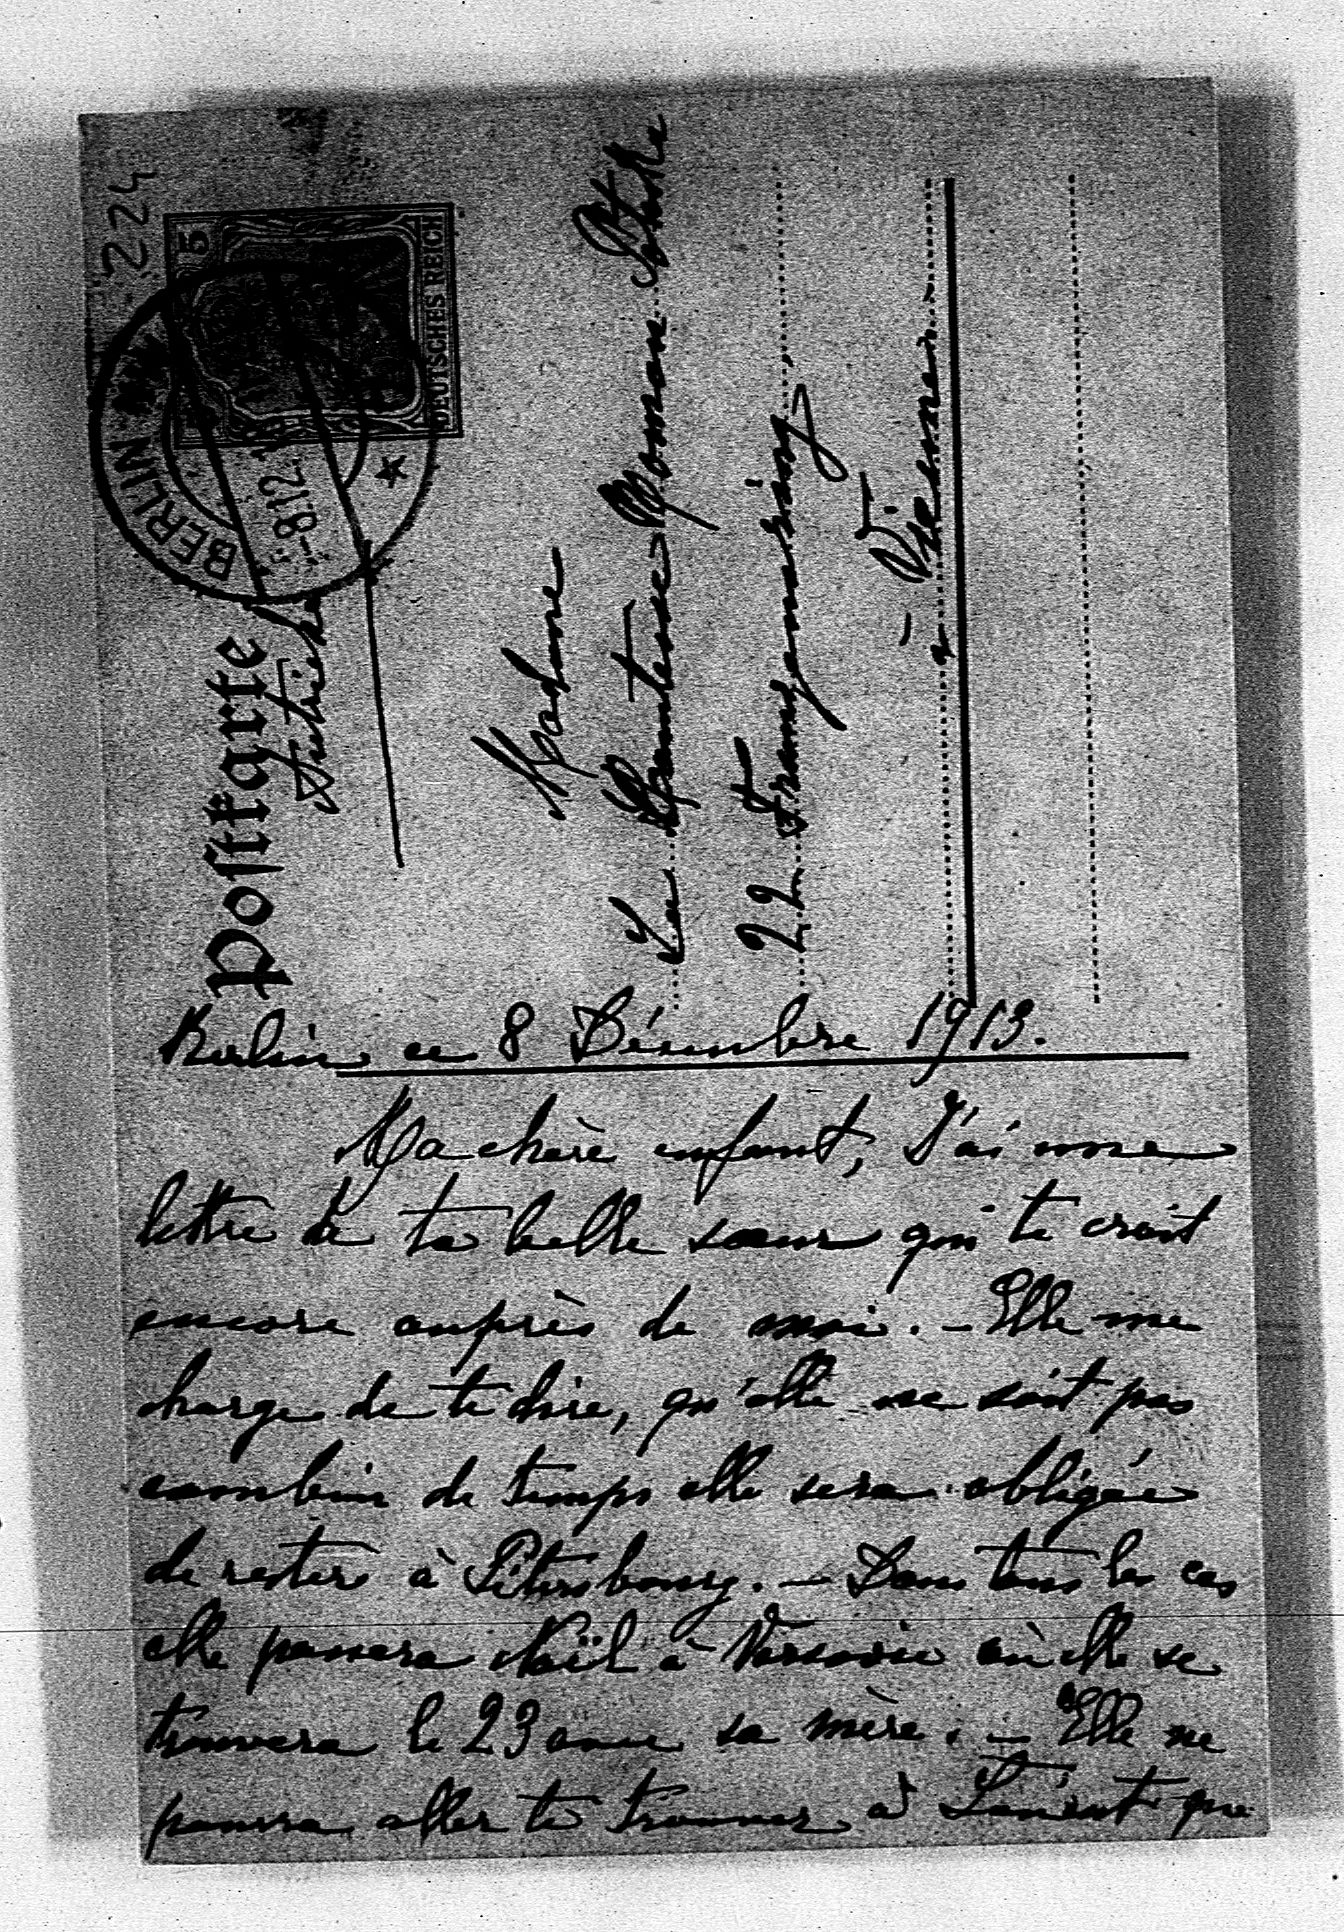 224
5
DEUTSCHES REICH
BERLIN
8.12.
Postkarte
Autriche
Madame
La Comtesse Roman Potocka
22 Franzensring,
à Vienne
Berlin ce 8 Décembre 1913.
Ma chère enfant, J'ai une
lettre de ta belle soeur qui te croit
encore auprès de moi. – Elle me
charge de te dire, qu'elle ne sait pas
combien de temps elle sera obligée
de rester à Pétersbourg. – Dans tous les cas
elle passera Noël à Varsovie où elle se
trouvera le 23 avec sa mère. – Elle ne
pourra aller te trouver à Lancut que